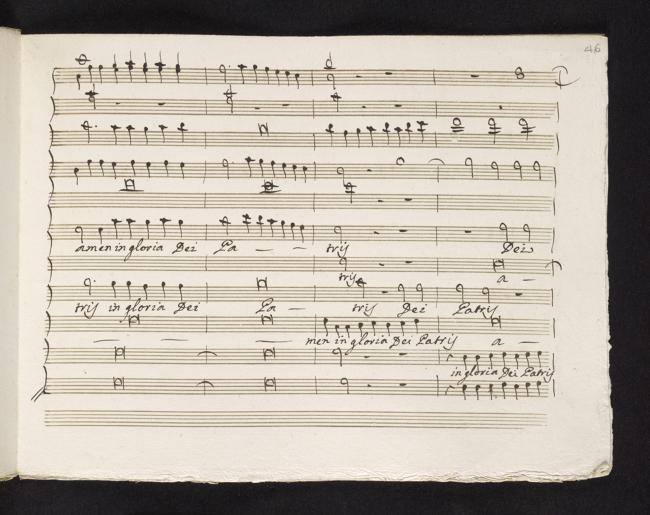 46
amen in gloria Dei Pa — — trij Dei
trij a —
trij in gloria Dei Pa — trij Dei Patrij
— — — men in gloria Dei Patrij a —
in gloria Dei Patrij